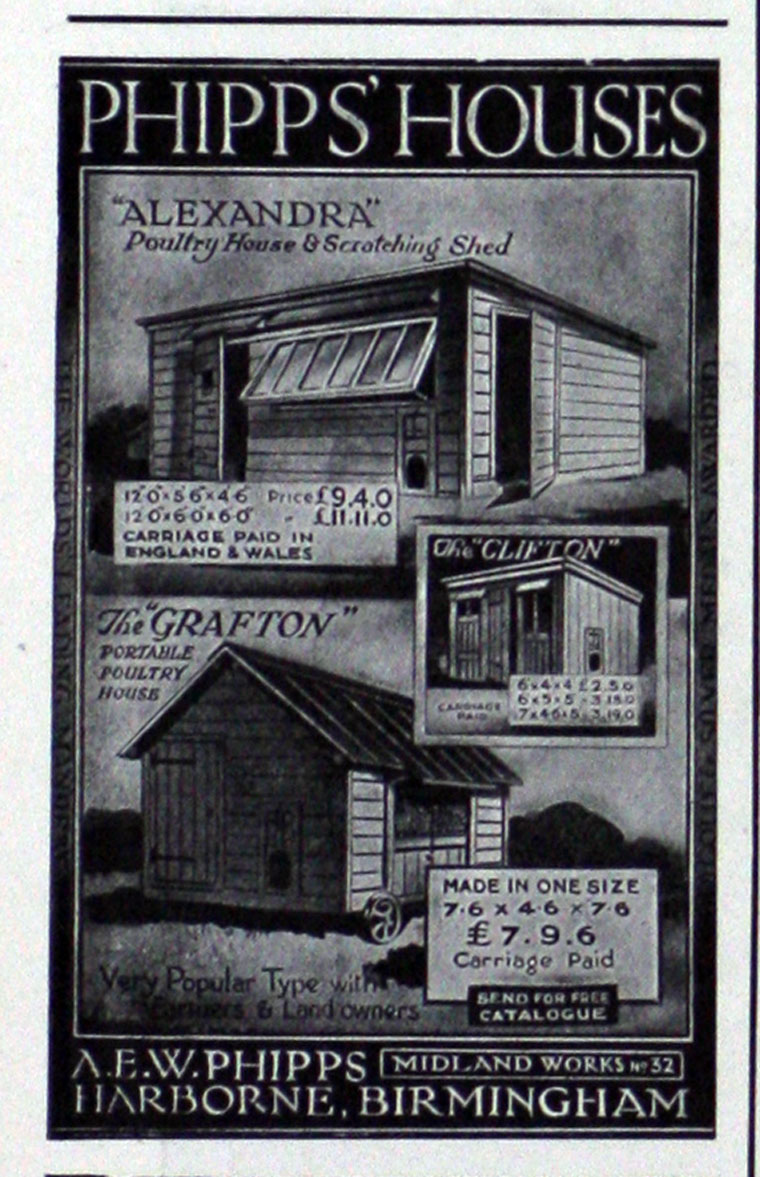 PHIPPS' HOUSES
"ALEXANDRA"
Poultry House & Scratching Shed
12·0 × 5·6 × 4·6 Price £9.4.0
12·0 × 6·0 × 6·0 " £11.11.0
CARRIAGE PAID IN
ENGLAND & WALES
The "CLIFTON"
6×4×4 £2.5.0
6×5×5 - 3.15.0
7×4·6×5 - 3.19.0
CARRIAGE
PAID
The "GRAFTON"
PORTABLE
POULTRY
HOUSE
MADE IN ONE SIZE
7·6 × 4·6 × 7·6
£7.9.6
Carriage Paid
SEND FOR FREE
CATALOGUE
Very Popular Type with
Farmers & Landowners
A.E.W. PHIPPS MIDLAND WORKS No 32
HARBORNE, BIRMINGHAM